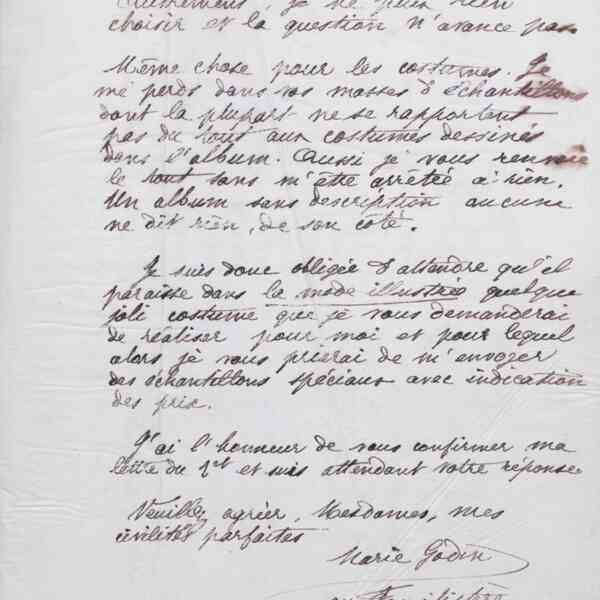 Autrement, je ne puis rien
choisir et la question n'avance pas.
Même chose pour les costumes. Je
me perds dans vos masses d'échantillons
dont la plupart ne se rapportent
pas du tout aux costumes dessinés
dans l'album. Aussi je vous renvoie
le tout sans m'être arrêtée à rien.
Un album sans description aucune
ne dit rien, de son côté.
Je suis donc obligée d'attendre qu'il
paraisse dans la mode illustrée quelque
joli costume que je vous demanderai
de réaliser pour moi et pour lequel
alors je vous prierai de m'envoyer
des échantillons spéciaux avec indication
des prix.
J'ai l'honneur de vous confirmer ma
lettre du 1er et suis attendant votre réponse.
Veuillez agréer, Mesdames, mes
civilités parfaites
Marie Godin
au Familistère